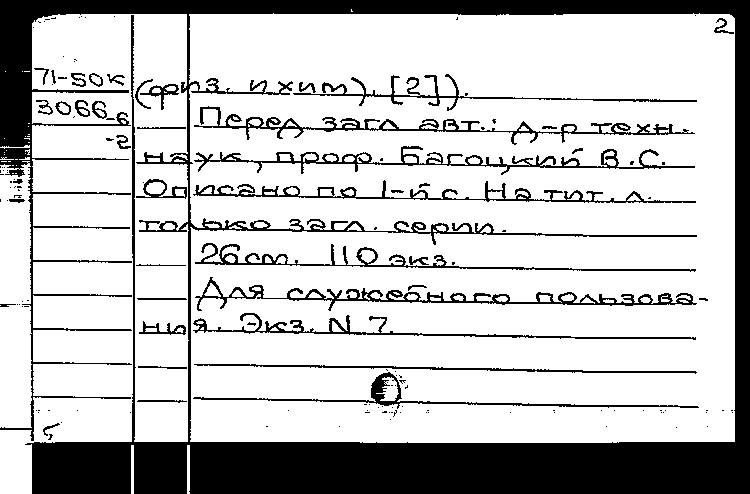 2
71-50к
3066-6
-2
(физ. и хим). [2]).
Перед загл авт.: д-р техн.
наук, проф. Багоцкий В.С.
Описано по 1-й с. На тит. л.
только загл. серии.
26 см. 110 экз.
Для служебного пользова-
ния. Экз. N 7.
5